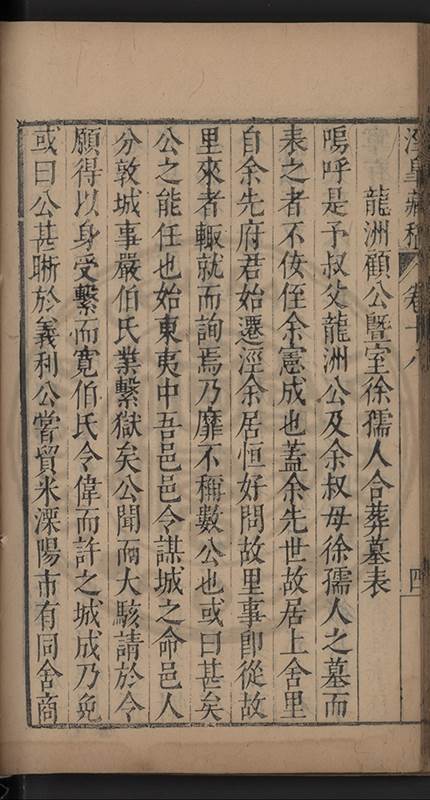 涇皋藏稿 卷十八 四
龍洲顧公暨室徐孺人合葬墓表
嗚呼是予叔父龍洲公及余叔母徐孺人之墓而
表之者不佞侄余憲成也蓋余先世故居上舍里
自余先府君始遷涇余居恒好問故里事即從故
里來者輙就而詢焉乃靡不稱數公也或曰甚矣
公之能任也始東夷中吾邑邑令謀城之命邑人
分敦城事嚴伯氏業繫獄矣公聞而大駭請於令
願得以身受繫而寬伯氏令偉而許之城成乃免
或曰公甚晰於義利公嘗貿米溧陽市有同舍商